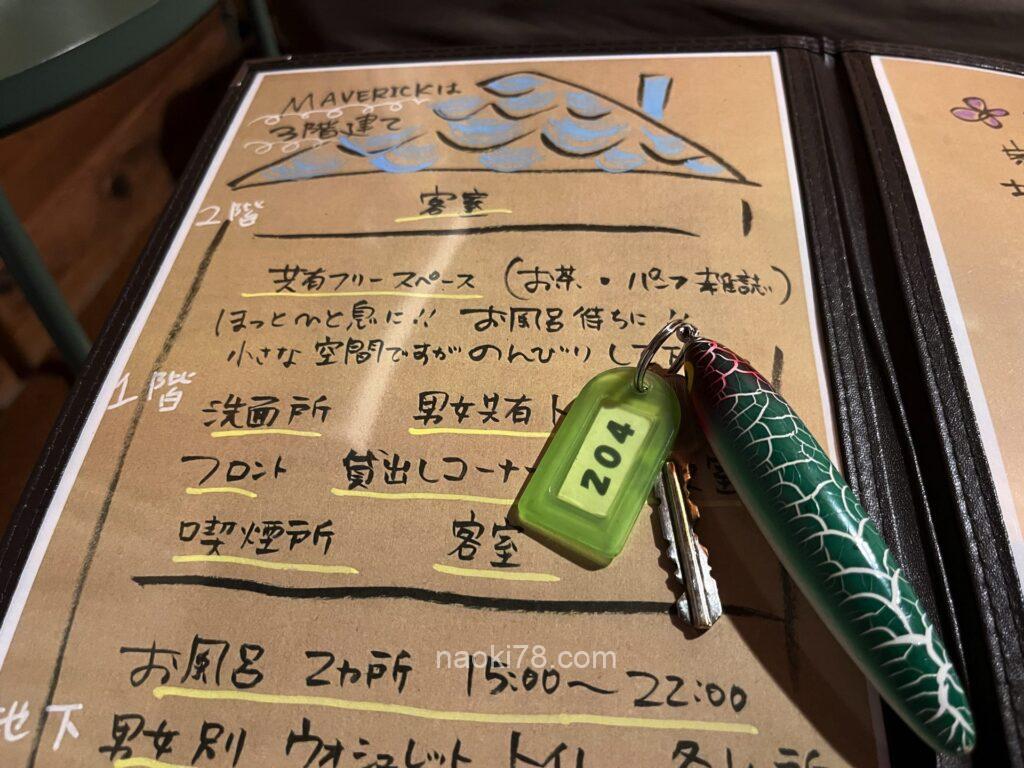 MAVERICKは
3階建て
2階
客室
共有フリースペース (お茶・パンフ雑誌)
ほっと一と息に!! お風呂待ちに!!
小さな空間ですがのんびりして下
1階
洗面所 男女共有ト
フロント 貸出しコーナー
喫煙所 客室
204
お風呂 2ヵ所 15:00~22:00
naoki78.com
地下
男女別 ウォシュレットトイレ